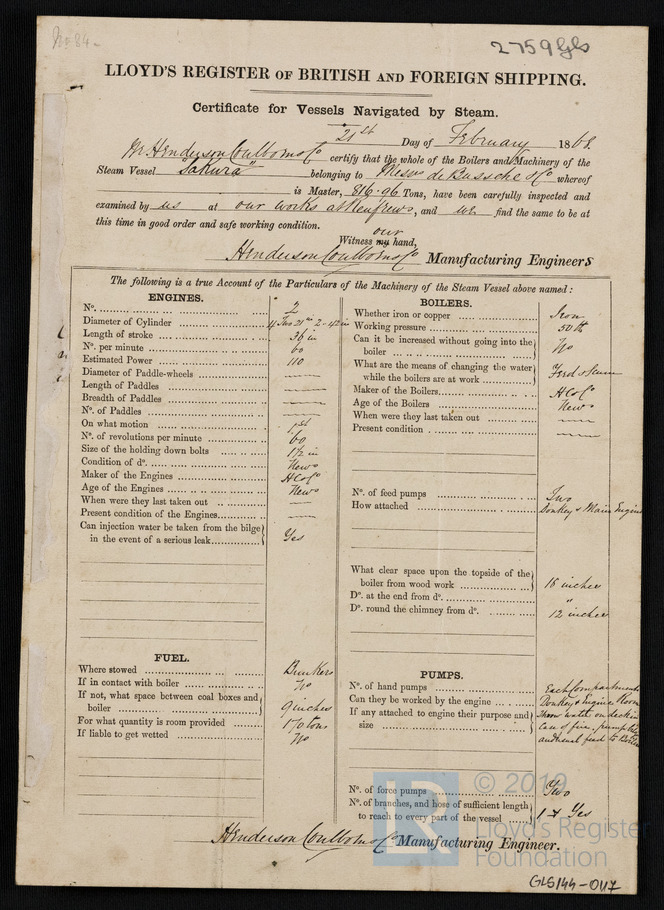 2759 Gls
LLOYD'S REGISTER OF BRITISH AND FOREIGN SHIPPING.
Certificate for Vessels Navigated by Steam.
21st Day of February 1869.
We Henderson Coulborn & Co certify that the whole of the Boilers and Machinery of the
Steam Vessel "Sakura" belonging to Messrs de Bussche & Co whereof
is Master, 816.96 Tons, have been carefully inspected and
examined by us at our works at Renfrew, and we find the same to be at
this time in good order and safe working condition.
our
Witness my hand,
Henderson Coulborn & Co Manufacturing Engineers
The following is a true Account of the Particulars of the Machinery of the Steam Vessel above named:
ENGINES.
No. 2
Diameter of Cylinder
Length of stroke 36 in
No. per minute 60
Estimated Power 110
Diameter of Paddle-wheels
Length of Paddles
Breadth of Paddles
No. of Paddles
On what motion 1st
No. of revolutions per minute 60
Size of the holding down bolts 1½ in
Condition of do. New
Maker of the Engines H C & Co
Age of the Engines New
When were they last taken out
Present condition of the Engines
Can injection water be taken from the bilge
in the event of a serious leak Yes
FUEL.
Where stowed Bunkers
If in contact with boiler No
If not, what space between coal boxes and
boiler 9 inches
For what quantity is room provided 170 tons
If liable to get wetted No
BOILERS.
Whether iron or copper Iron
Working pressure 50 lb
Can it be increased without going into the
boiler No
What are the means of changing the water
while the boilers are at work Feed & Scum
Maker of the Boilers H C & Co
Age of the Boilers New
When were they last taken out
Present condition
No. of feed pumps Two
How attached Donkey & Main Engine
What clear space upon the topside of the
boiler from wood work 18 inches
Do. at the end from do. "
Do. round the chimney from do. 12 inches
PUMPS.
No. of hand pumps Each Compartment
Can they be worked by the engine Donkey & Engine Room
If any attached to engine their purpose and
size Throw water on deck in
case of fire, pump
and usual feed to Boilers
No. of force pumps Two
No. of branches, and hose of sufficient length
to reach to every part of the vessel 1 & Yes
Henderson Coulborn & Co Manufacturing Engineer.
LR © 2019
Lloyd's Register
Foundation
GLS144-0117